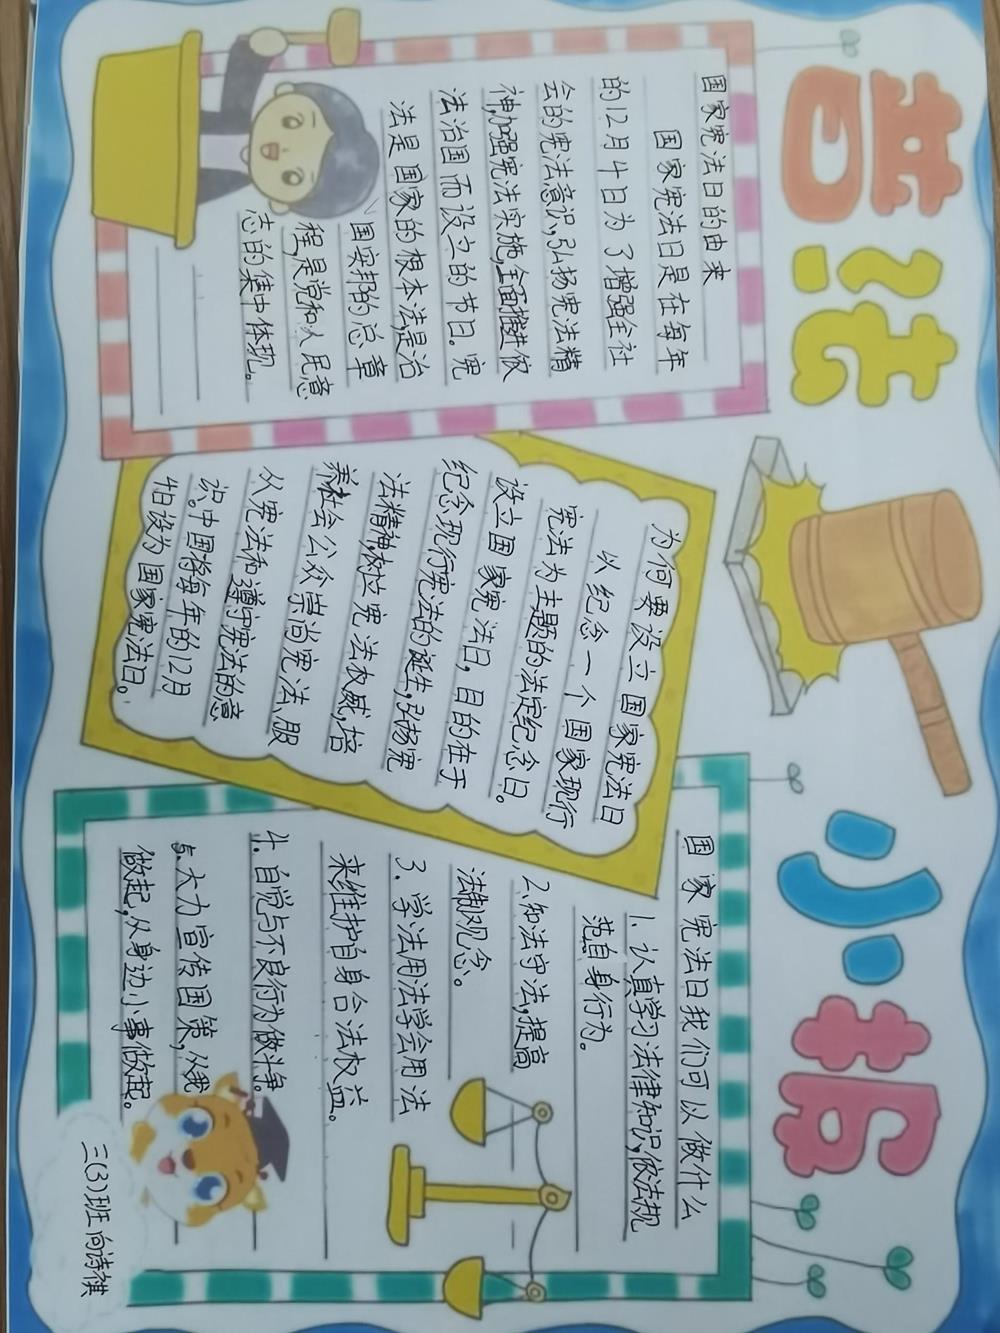 普法小报
国家宪法日的由来
国家宪法日是在每年
的12月4日为了增强全社
会的宪法意识,弘扬宪法精
神,加强宪法实施,全面推进依
法治国而设立的节日。宪
法是国家的根本法,是治
国安邦的总章
程,是党和人民意
志的集中体现。
为何要设立国家宪法日
以纪念一个国家现行
宪法为主题的法定纪念日。
设立国家宪法日,目的在于
纪念现行宪法的诞生,弘扬宪
法精神,树立宪法权威,培
养社会公众崇尚宪法、服
从宪法和遵守宪法的意
识。中国将每年的12月
4日设为国家宪法日。
国家宪法日我们可以做什么
1.认真学习法律知识,依法规
范自身行为。
2.知法守法,提高
法制观念。
3.学法用法学会用法
来维护自身合法权益。
4.自觉与不良行为做斗争。
5.大力宣传国策,从我
做起,从身边小事做起。
三(3)班 向诗祺